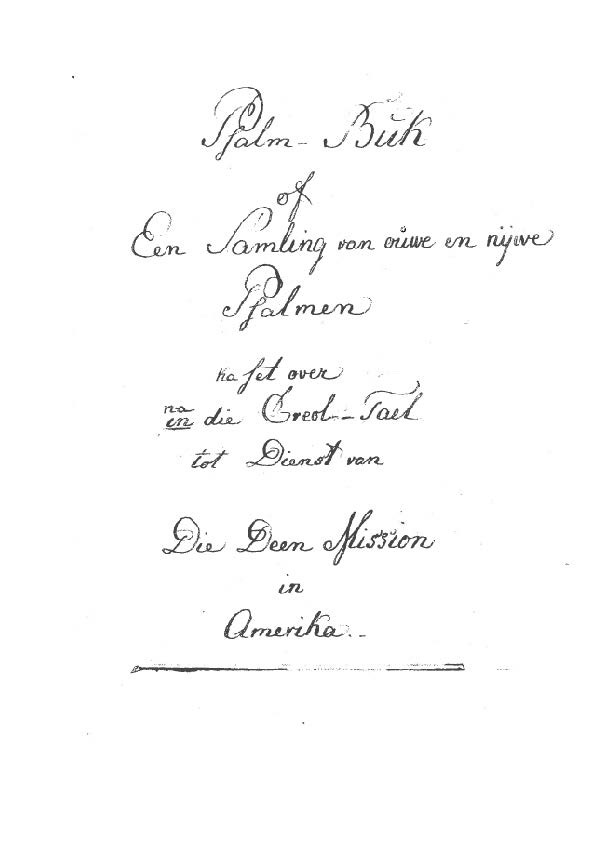 Psalm-Bŭk
of
Een Samling van oŭwe en nijwe
Psalmen
ka set over
na
en die Creol-Tael
tot Dienst van
Die Deen Mission
in
Amerika.-